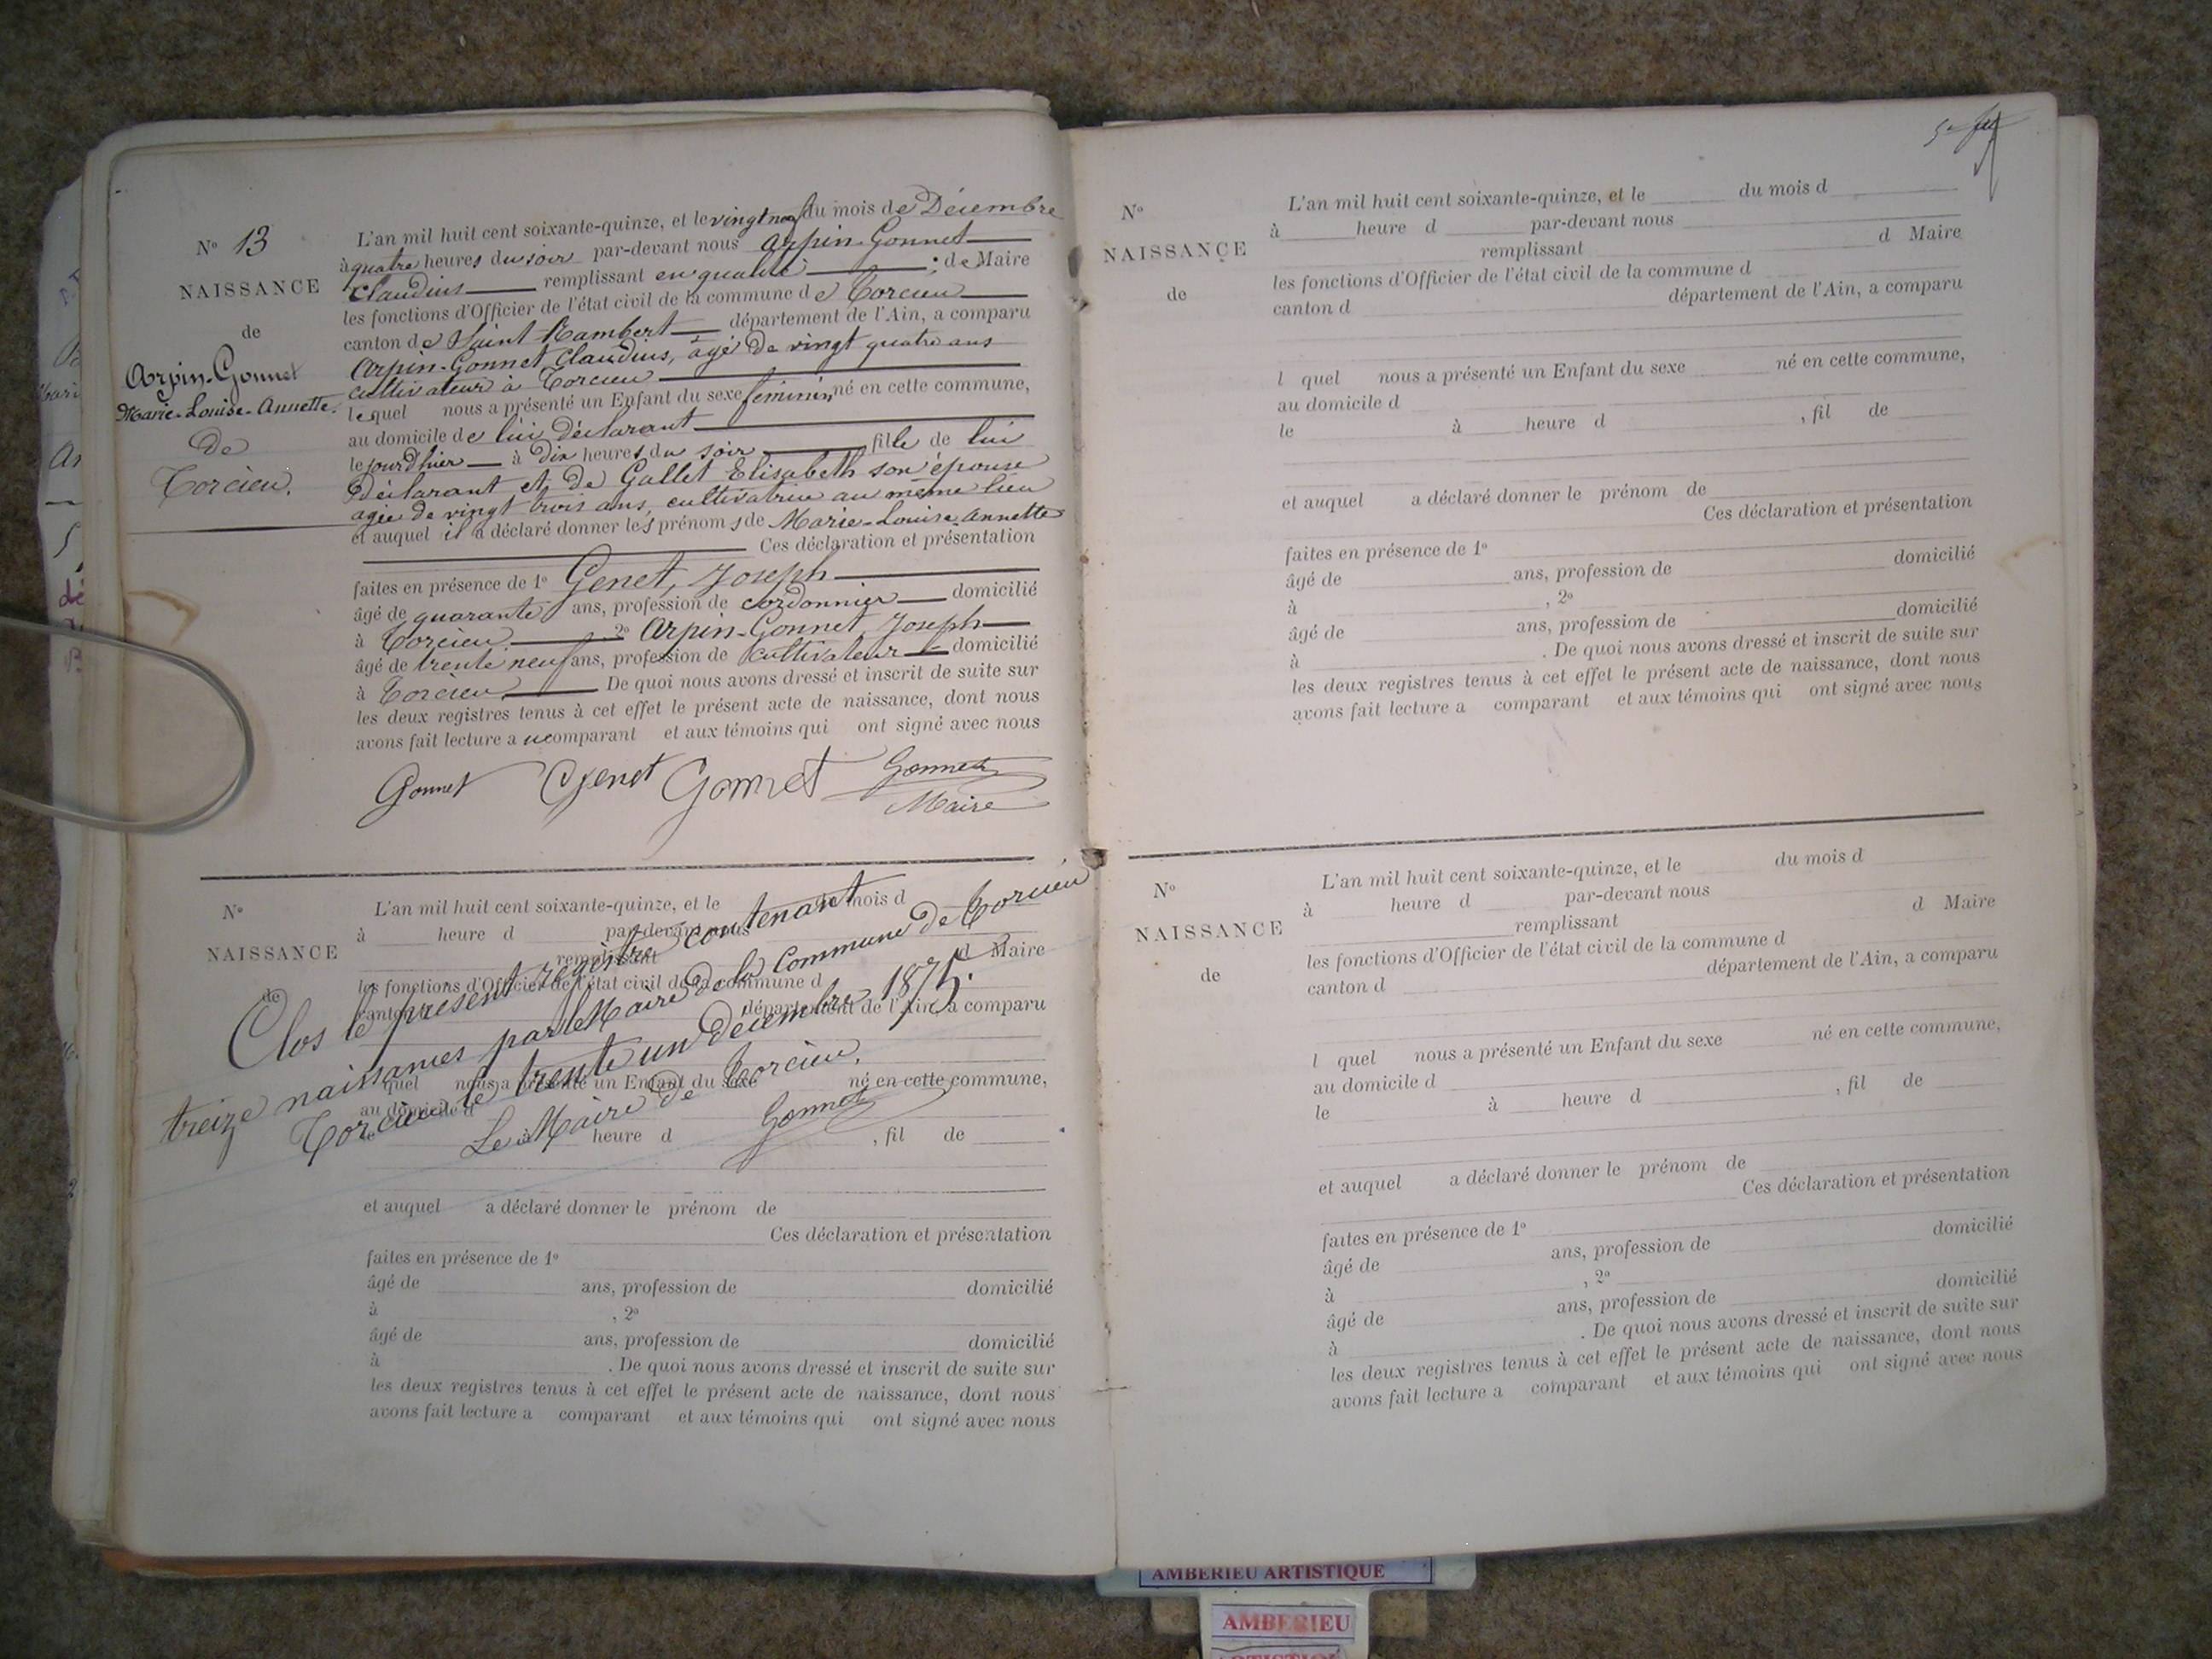 N° 13
NAISSANCE
de
Arpin-Gonnet
Marie-Louise-Annette.
De
Torcieu.
L'an mil huit cent soixante-quinze, et le vingt neuf du mois de Décembre
à quatre heures du soir par-devant nous Arpin-Gonnet
Claudius remplissant en qualité de Maire
les fonctions d'Officier de l'état civil de la commune de Torcieu
canton de Saint Rambert département de l'Ain, a comparu
Arpin-Gonnet Claudius, âgé de vingt quatre ans
cultivateur à Torcieu
lequel nous a présenté un Enfant du sexe féminin, né en cette commune,
au domicile de lui déclarant
le jourd'hier à dix heures du soir, fille de lui
Déclarant et de Gallet Elisabeth son épouse
agée de vingt trois ans, cultivatrice au même lieu
et auquel il a déclaré donner les prénoms de Marie-Louise Annette
Ces déclaration et présentation
faites en présence de 1° Genet, Joseph
âgé de quarante ans, profession de cordonnier domicilié
à Torcieu 2° Arpin-Gonnet Joseph
âgé de trente neuf ans, profession de cultivateur domicilié
à Torcieu De quoi nous avons dressé et inscrit de suite sur
les deux registres tenus à cet effet le présent acte de naissance, dont nous
avons fait lecture au comparant et aux témoins qui ont signé avec nous
Gonnet Genet Gonnet Gonnet
Maire
N°
NAISSANCE
de
L'an mil huit cent soixante-quinze, et le du mois d
à heure d par-devant nous
remplissant d Maire
les fonctions d'Officier de l'état civil de la commune d
canton d département de l'Ain, a comparu
l quel nous a présenté un Enfant du sexe né en cette commune,
au domicile d
le à heure d , fil de
Clos le présent registre contenant
treize naissances par le Maire de la Commune de Torcieu
Torcieu le trente un Décembre 1875.
Le Maire de Torcieu.
Gonnet
et auquel a déclaré donner le prénom de
Ces déclaration et présentation
faites en présence de 1°
âgé de ans, profession de domicilié
à , 2°
âgé de ans, profession de domicilié
à . De quoi nous avons dressé et inscrit de suite sur
les deux registres tenus à cet effet le présent acte de naissance, dont nous
avons fait lecture a comparant et aux témoins qui ont signé avec nous
N°
NAISSANCE
de
L'an mil huit cent soixante-quinze, et le du mois d
à heure d par-devant nous
remplissant d Maire
les fonctions d'Officier de l'état civil de la commune d
canton d département de l'Ain, a comparu
l quel nous a présenté un Enfant du sexe né en cette commune,
au domicile d
le à heure d , fil de
et auquel a déclaré donner le prénom de
Ces déclaration et présentation
faites en présence de 1°
âgé de ans, profession de domicilié
à , 2°
âgé de ans, profession de domicilié
à . De quoi nous avons dressé et inscrit de suite sur
les deux registres tenus à cet effet le présent acte de naissance, dont nous
avons fait lecture a comparant et aux témoins qui ont signé avec nous
N°
NAISSANCE
de
L'an mil huit cent soixante-quinze, et le du mois d
à heure d par-devant nous
remplissant d Maire
les fonctions d'Officier de l'état civil de la commune d
canton d département de l'Ain, a comparu
l quel nous a présenté un Enfant du sexe né en cette commune,
au domicile d
le à heure d , fil de
et auquel a déclaré donner le prénom de
Ces déclaration et présentation
faites en présence de 1°
âgé de ans, profession de domicilié
à , 2°
âgé de ans, profession de domicilié
à . De quoi nous avons dressé et inscrit de suite sur
les deux registres tenus à cet effet le présent acte de naissance, dont nous
avons fait lecture a comparant et aux témoins qui ont signé avec nous
AMBERIEU ARTISTIQUE
AMBERIEU
ARTISTIQUE